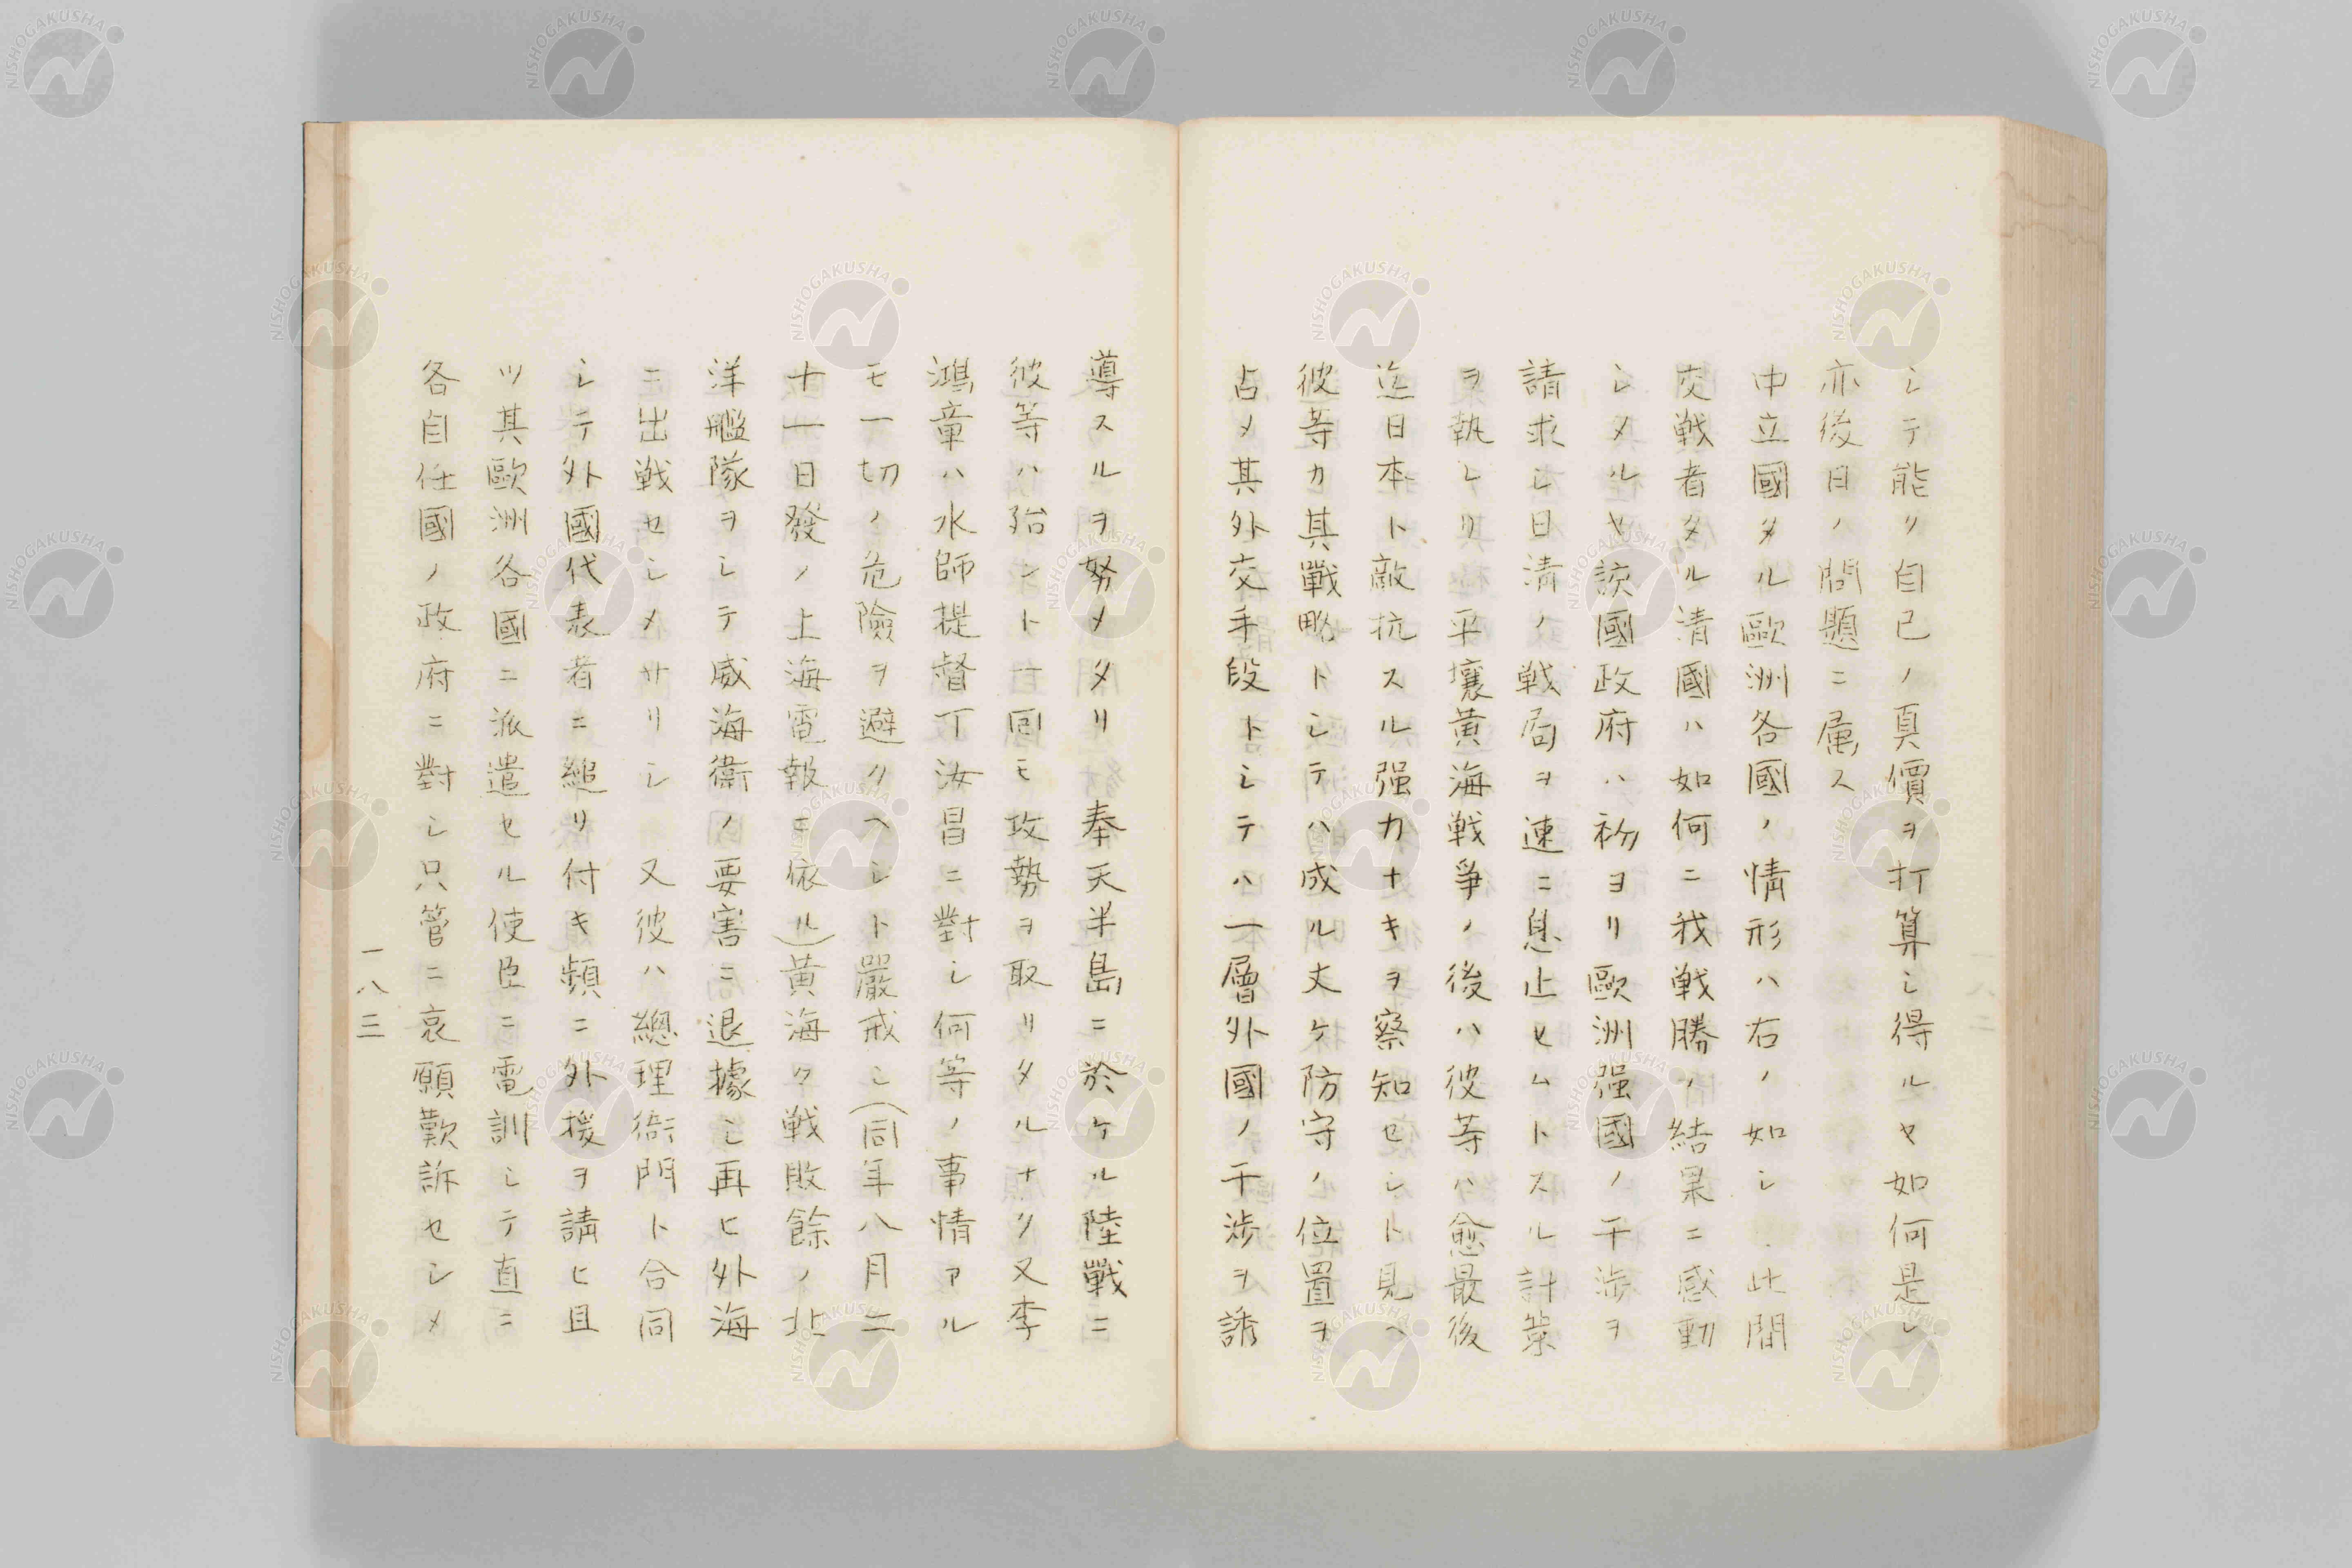 シテ能ク自己ノ真價ヲ打算シ得ルヤ如何是レ
亦後日ノ問題ニ属ス
中立國タル歐洲各國ノ情形ハ右ノ如シ此間
交戦者タル清國ハ如何ニ我戦勝ノ結果ニ感動
シタルヤ該國政府ハ初ヨリ歐洲强國ノ干渉ヲ
請求シ日清ノ戦局ヲ速ニ息止セムトスル計策
ヲ執レリ平壤黄海戦爭ノ後ハ彼等ハ愈最後
迄日本ト敵抗スル强力ナキヲ察知セシト見ヘ
彼等カ其戰略トシテハ成ル丈ケ防守ノ位置ヲ
占メ其外交手段トシテハ一層外國ノ干渉ヲ誘
導スルヲ努メタリ奉天半島ニ於ケル陸戰ニ
彼等ハ殆ント一回モ攻勢ヲ取リタルナク又李
鴻章ハ水師提督丁汝昌ニ對シ何等ノ事情アル
モ一切ノ危險ヲ避クヘシト嚴戒シ(同年八月二
十一日發ノ上海電報ニ依ル)黄海ノ戦敗餘ノ北
洋艦隊ヲシテ威海衛ノ要害ニ退據シ再ヒ外海
ニ出戦セシメサリシ又彼ハ總理衙門ト合同
シテ外國代表者ニ縋リ付キ頻ニ外援ヲ請ヒ且
ツ其歐洲各國ニ派遣セル使臣ニ電訓シテ直ニ
各自任國ノ政府ニ對シ只管ニ哀願歎訴セシメ
一八三
NISHOGAKUSHA